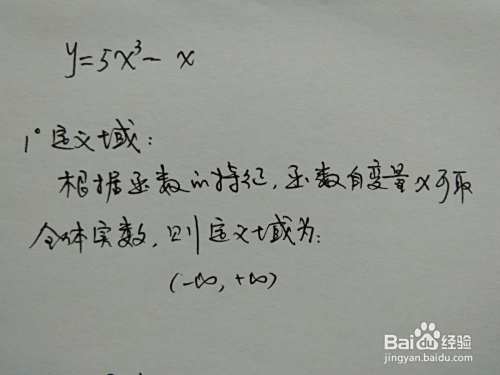 y=5x³-x
1°定义域:
根据函数的特征,函数自变量x可取
全体实数,则定义域为:
(-∞,+∞)
Baidu经验
jingyan.baidu.com